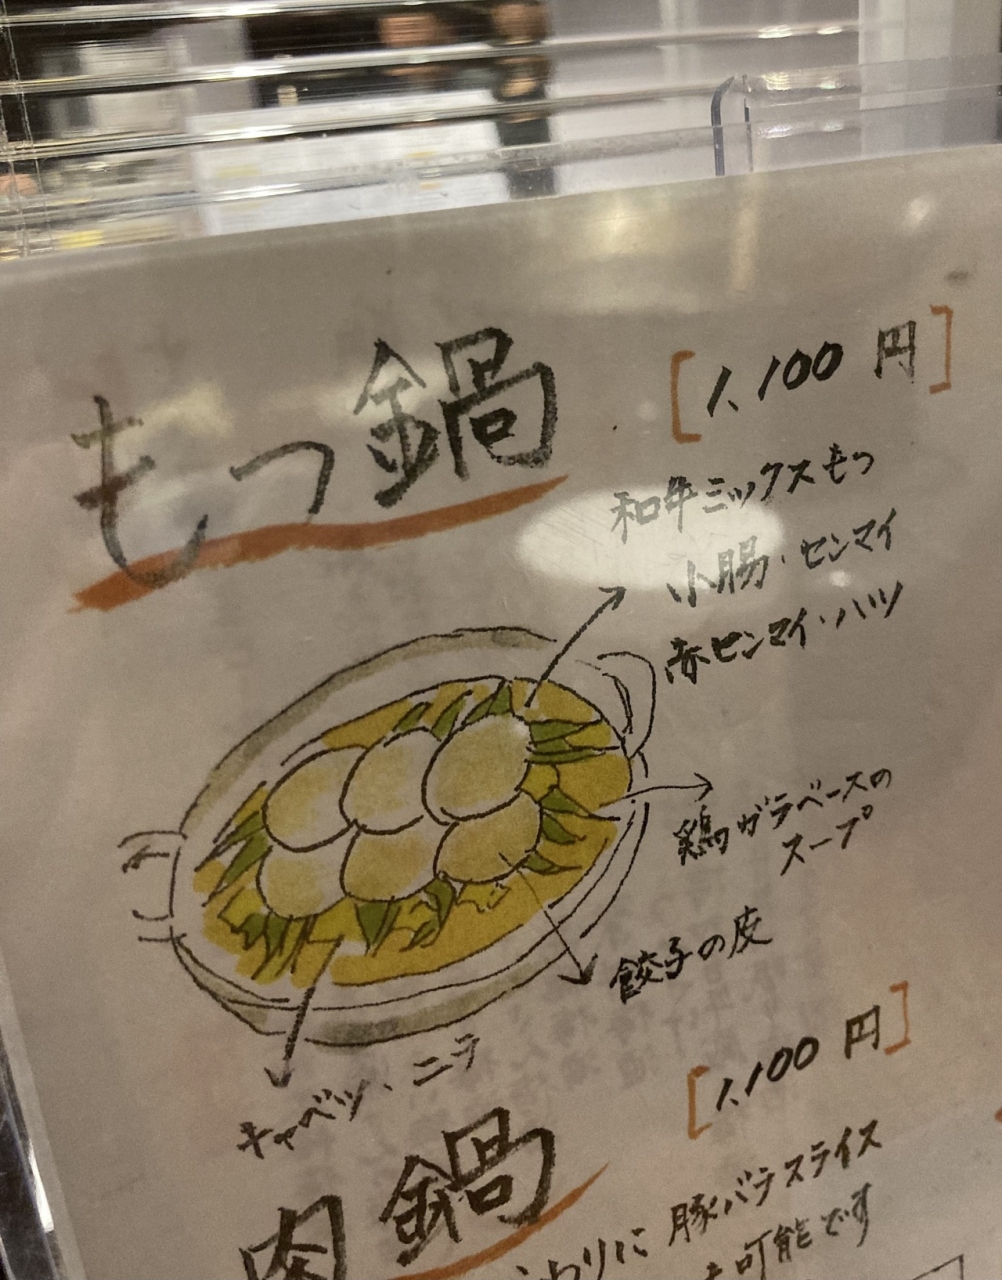 もつ鍋
[1,100 円]
和牛ミックスもつ
小腸・センマイ
赤センマイ・ハツ
鶏ガラベースの
スープ
餃子の皮
キャベツ、ニラ
肉鍋
[1,100 円]
わりに 豚バラスライス
可能です